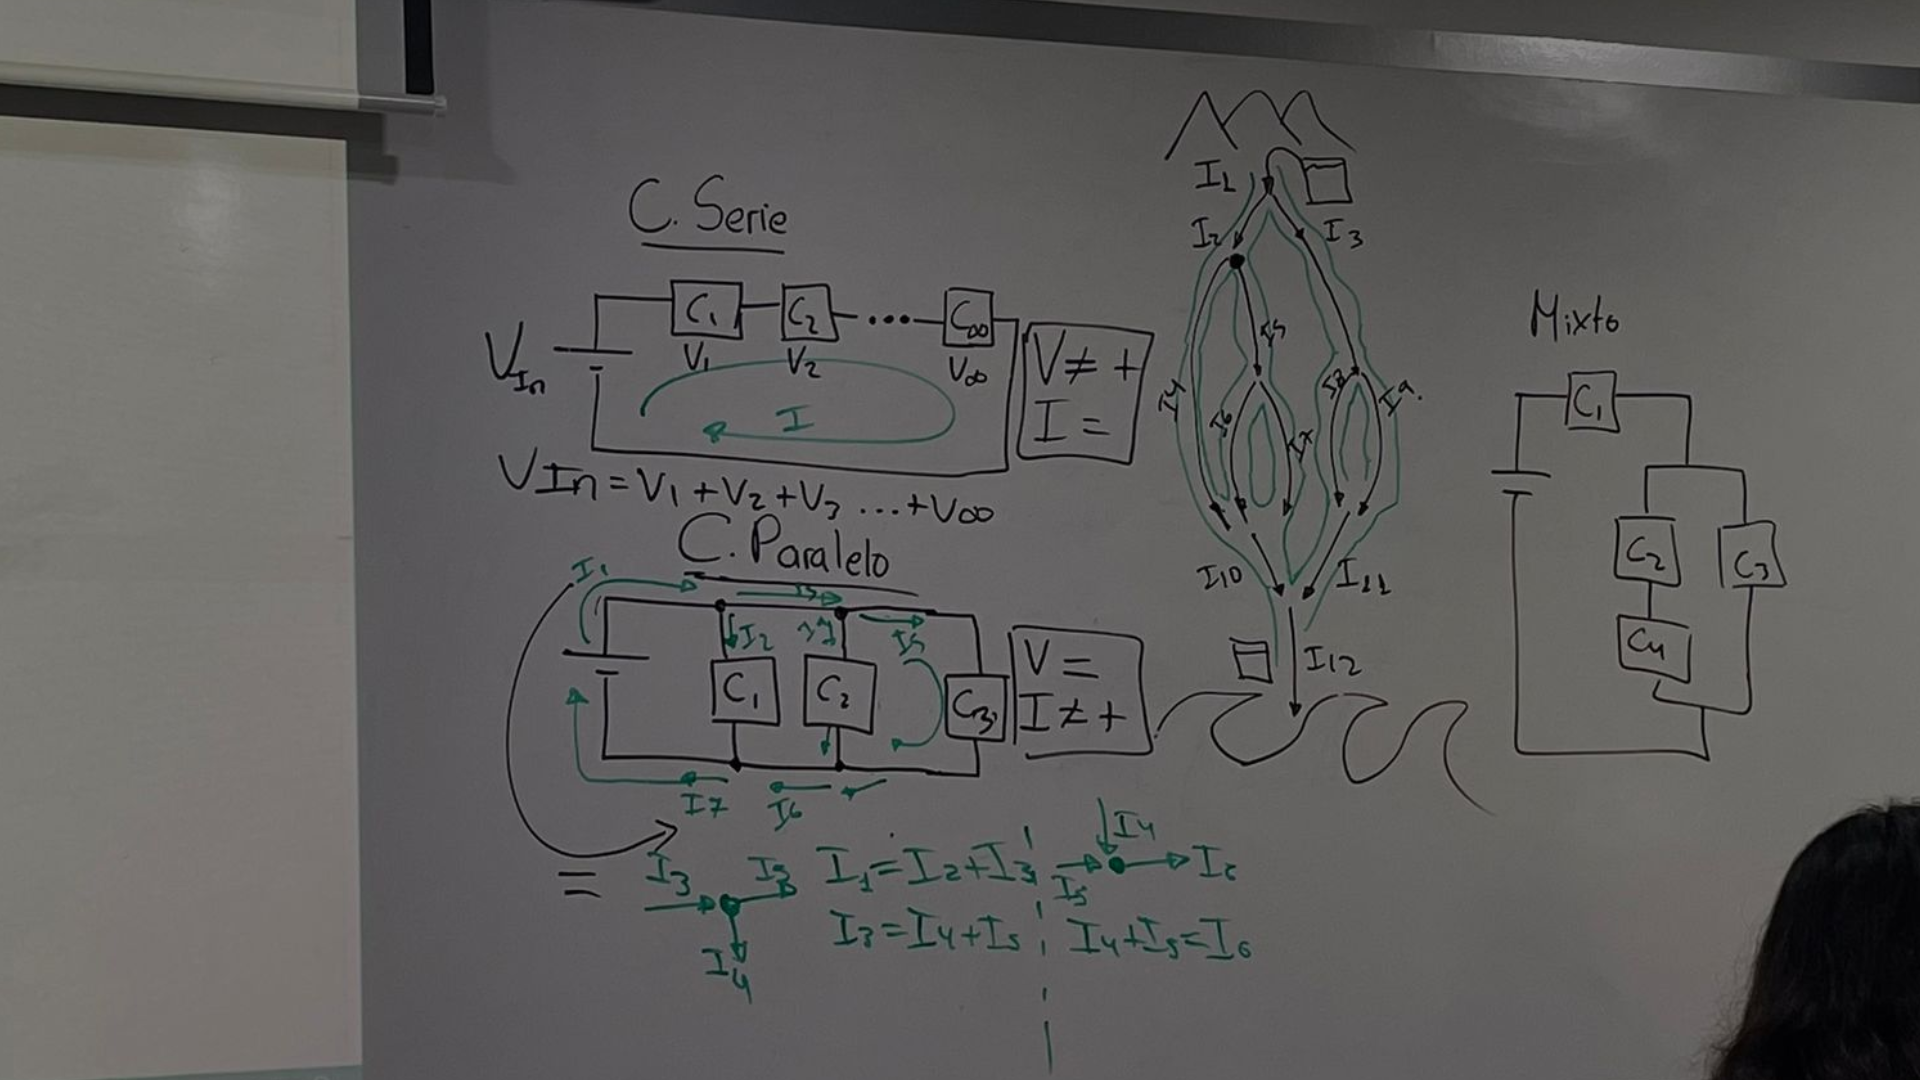 C. Serie
C1 C2 ... C∞
V1 V2 V∞
VIn
I
V ≠ +
I =
VIn = V1 + V2 + V3 ... + V∞
C. Paralelo
I1
I2
I5
C1 C2 C3
V =
I ≠ +
I7 I6
=
I3
I4
I1 = I2 + I3
I3 = I4 + I5
I4
I5
I4 + I5 = I6
I1
I2 I3
I4 I5 I6 I8 I9
I10 I11
I12
Mixto
C1
C2 C3
C4